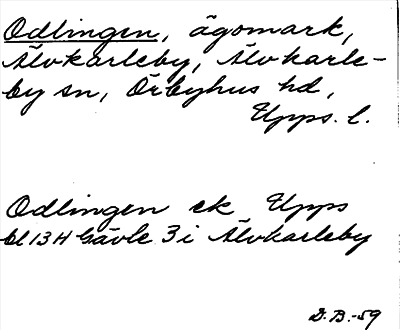 Odlingen, ägomark,
Älvkarleby, Älvkarle-
by sn, Örbyhus hd,
Upps. l.
Odlingen ek Upps
bl 13 H Gävle 3 i Älvkarleby
D.B.-59